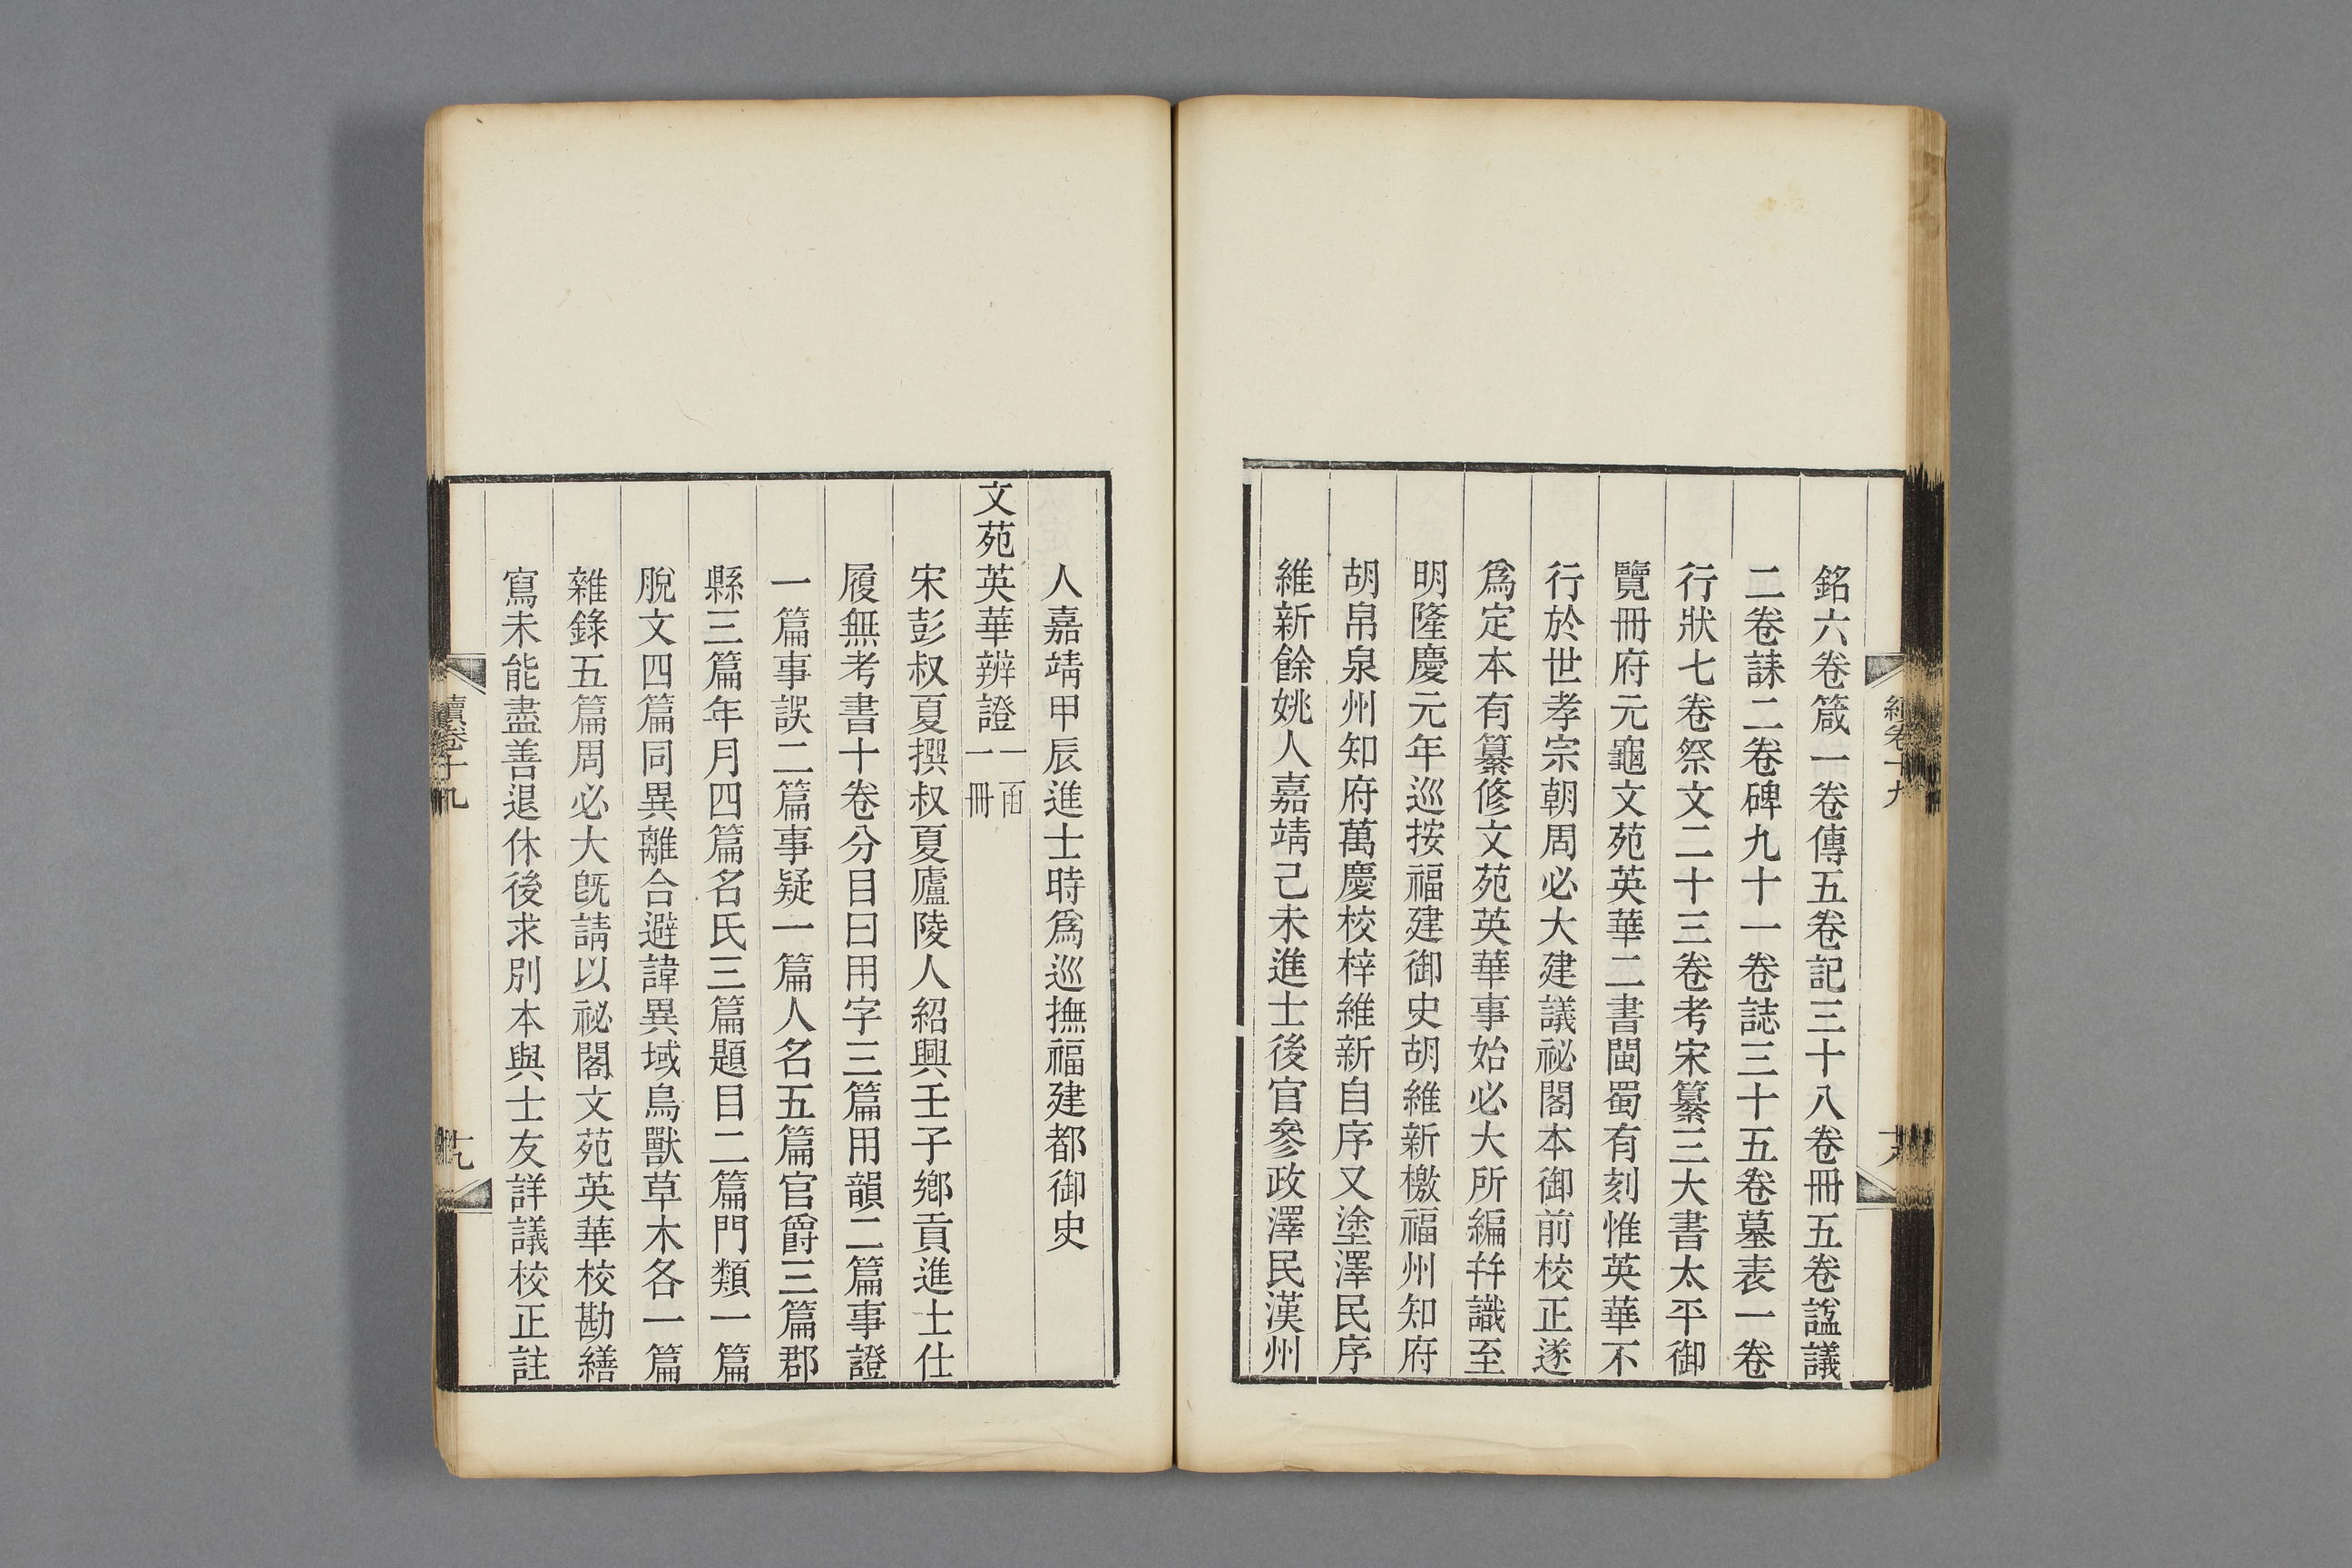 銘六卷箴一卷傳五卷記三十八卷冊五卷謚議
二卷誄二卷碑九十一卷誌三十五卷墓表一卷
行狀七卷祭文二十三卷考宋纂三大書太平御
覽冊府元龜文苑英華二書閩蜀有刻惟英華不
行於世孝宗朝周必大建議祕閣本御前校正遂
爲定本有纂修文苑英華事始必大所編幷識至
明隆慶元年巡按福建御史胡維新檄福州知府
胡帛泉州知府萬慶校梓維新自序又塗澤民序
維新餘姚人嘉靖己未進士後官參政澤民漢州
人嘉靖甲辰進士時爲巡撫福建都御史
文苑英華辨證一函一冊
宋彭叔夏撰叔夏廬陵人紹興壬子鄉貢進士仕
履無考書十卷分目曰用字三篇用韻二篇事證
一篇事誤二篇事疑一篇人名五篇官爵三篇郡
縣三篇年月四篇名氏三篇題目二篇門類一篇
脫文四篇同異離合避諱異域鳥獸草木各一篇
雜錄五篇周必大旣請以祕閣文苑英華校勘繕
寫未能盡善退休後求別本與士友詳議校正註
續卷十九
十九